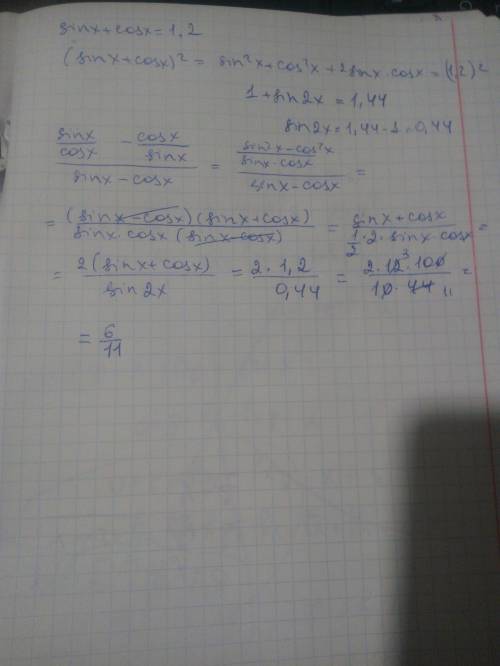 sinx+cosx=1,2
(sinx+cosx)² = sin²x+cos²x+2sinx·cosx=(1,2)²
1+sin2x = 1,44
sin2x=1,44-1=0,44
((sinx/cosx) - (cosx/sinx))/(sinx-cosx) = ((sin²x-cos²x)/(sinx·cosx))/(sinx-cosx) =
= ((sinx-cosx)(sinx+cosx))/(sinx·cosx(sinx-cosx)) = (sinx+cosx)/(1/2·2·sinx·cosx) =
= (2(sinx+cosx))/(sin2x) = (2·1,2)/(0,44) = (2·12³·100)/(10·44 11) =
= 6/11